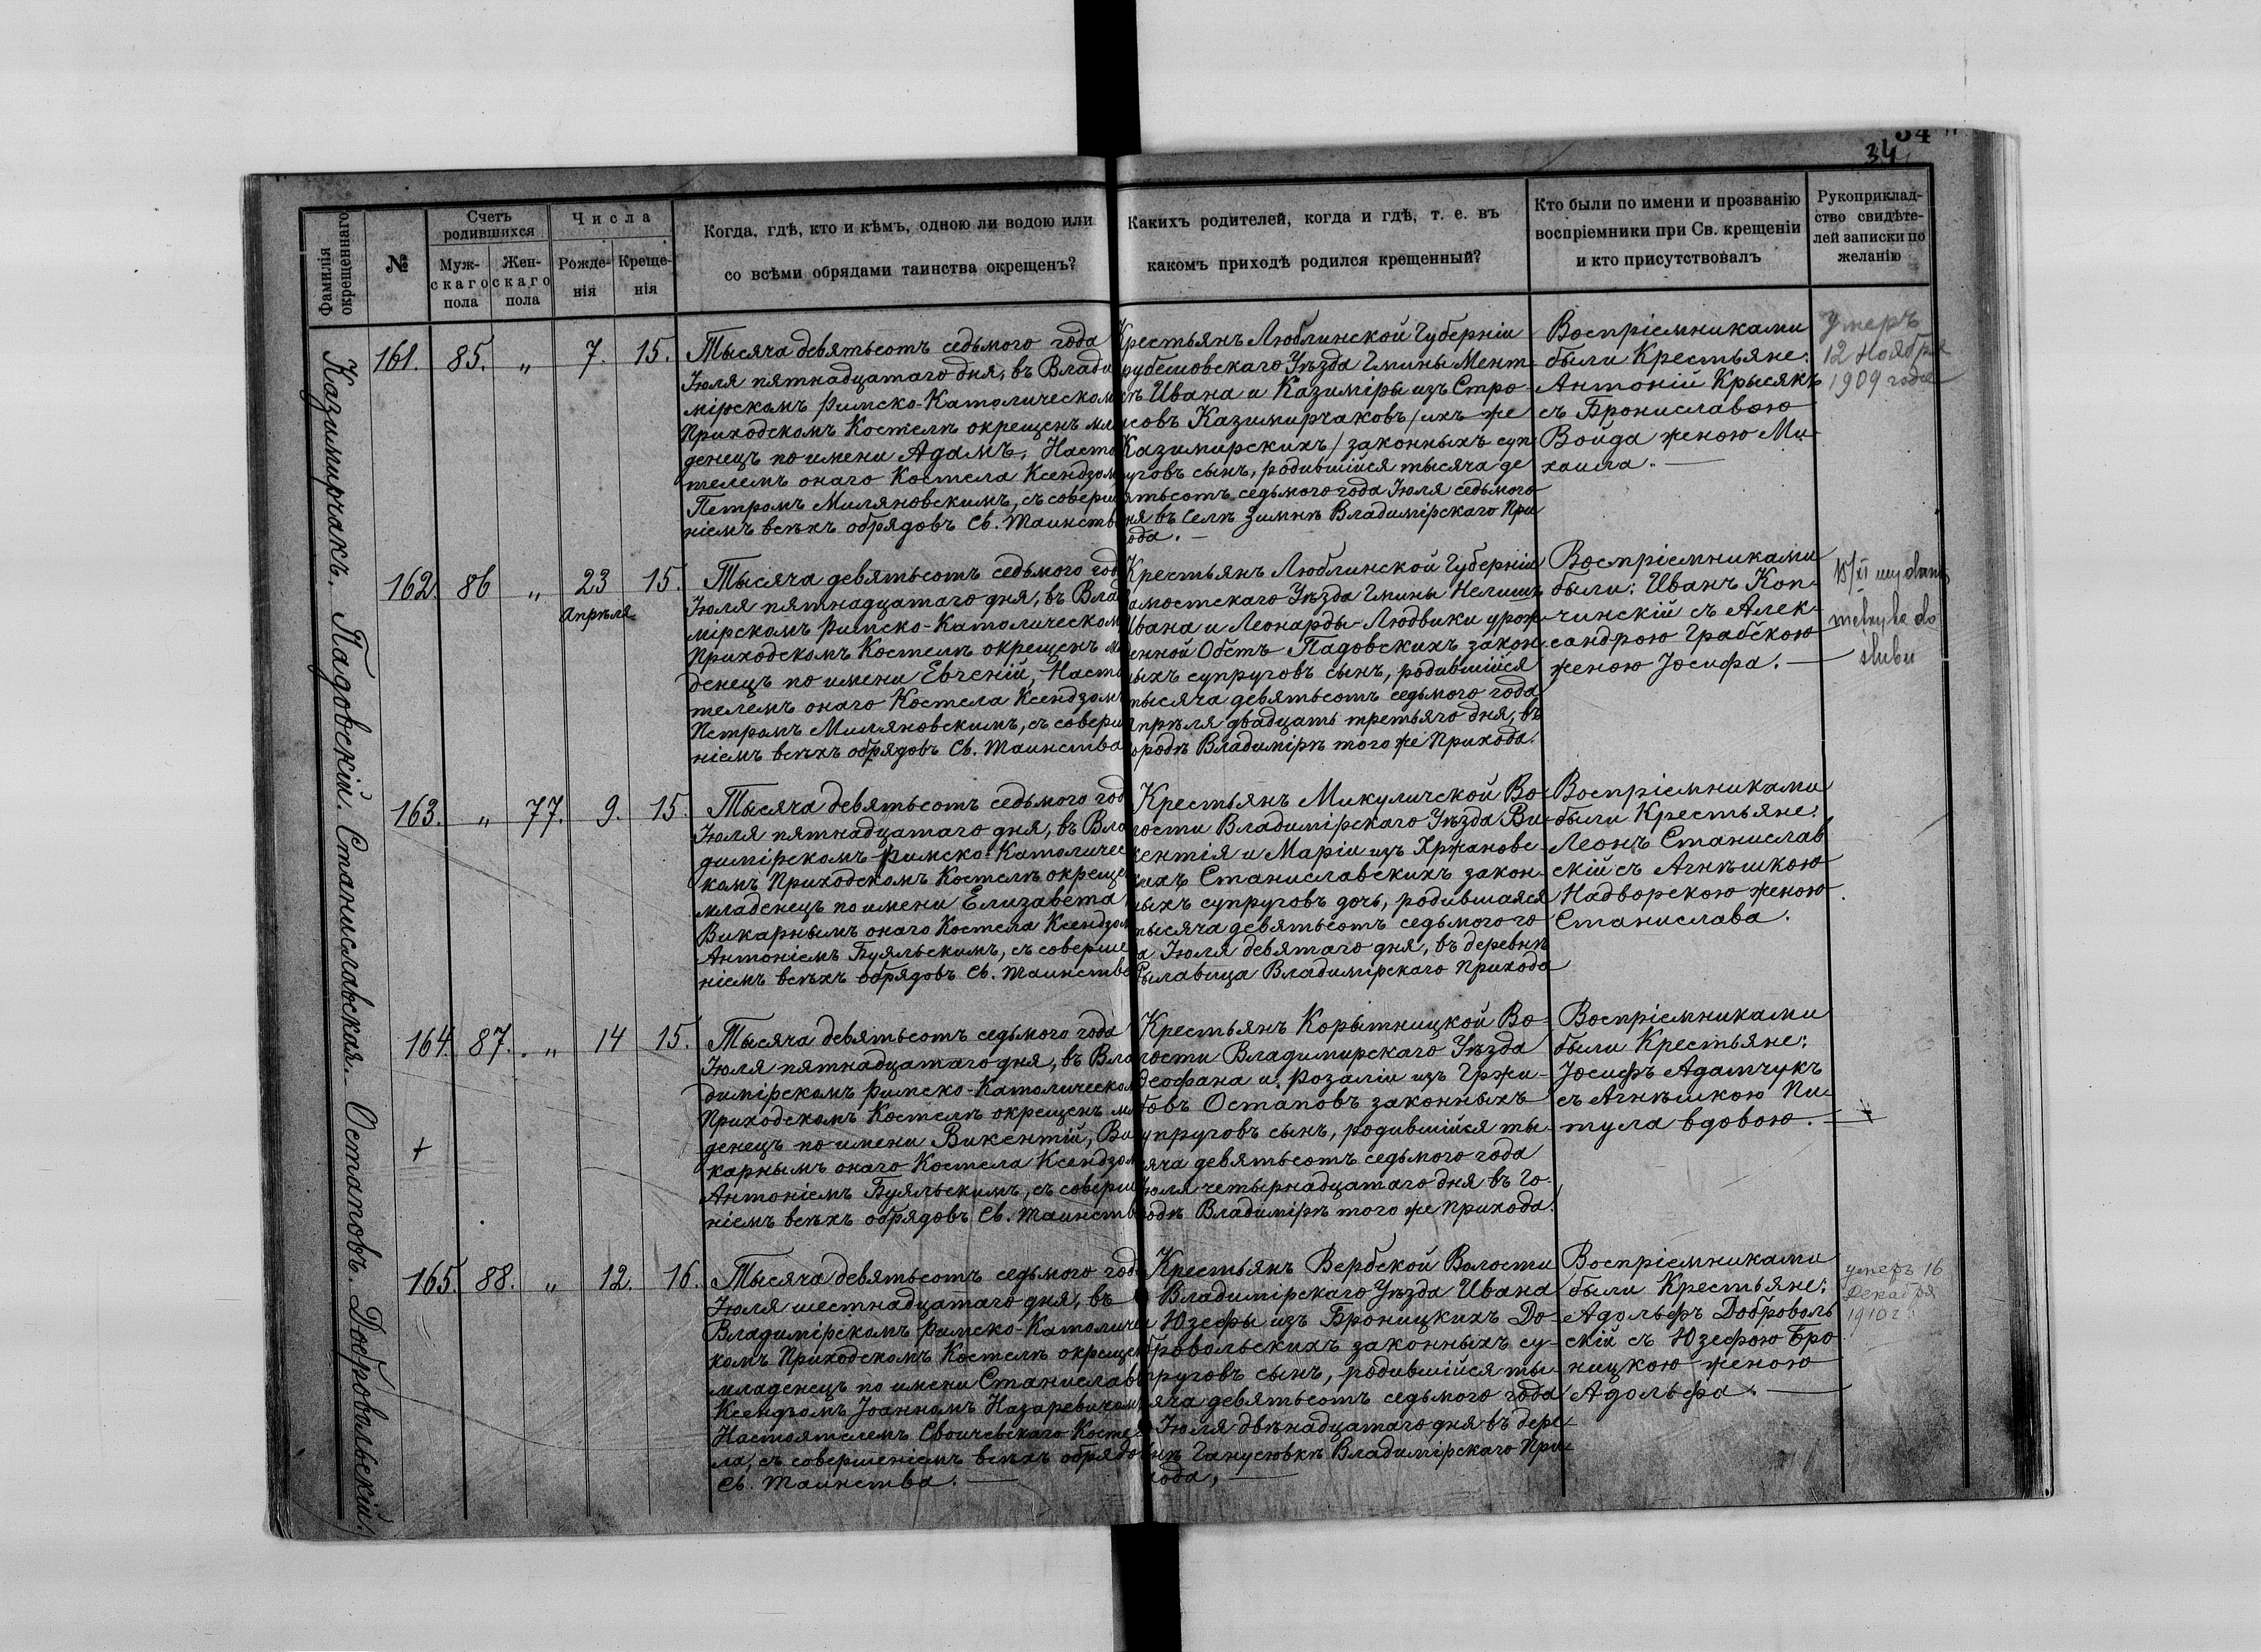 34
34
Фамилія
окрещеннаго
№
Счетъ
родившихся
Муж-
скаго
пола
Жен-
скаго
пола
Числа
Рожде-
нія
Креще-
нія
Когда, гдѣ, кто и кѣмъ, одною ли водою или
со всѣми обрядами таинства окрещенъ?
Какихъ родителей, когда и гдѣ, т. е. въ
какомъ приходѣ родился крещенный?
Кто были по имени и прозванію
воспріемники при Св. крещеніи
и кто присутствовалъ
Рукоприклад-
ство свидѣте-
лей записки по
желанію
Казимирчакъ. Падовскій. Станиславская. Остаповъ. Добровольскій.
161. 85. „ 7. 15.
Тысяча девятьсотъ седьмого года
Іюля пятнадцатаго дня, въ Влади
мірскомъ Римско-Католическом
Приходскомъ Костелѣ окрещенъ мла
денецъ по имени Адамъ, Насто
телемъ онаго Костела Ксендзом
Петромъ Миляновскимъ, съ соверше
ніемъ всѣхъ обрядовъ Св. Таинств
Крестьянъ Люблинской Губерніи
рубешовскаго Уѣзда Гмины Мент-
къ Ивана и Казиміры изъ Стро-
совъ Казимирчаковъ /ихъ же
Казимирскихъ/ законныхъ суп-
уговъ сынъ, родившійся тысяча де
вятьсотъ седьмого года Іюля седьмого
ня въ Селѣ Зимнѣ Владимірскаго При
ода. —
Воспріемниками
были Крестьяне:
Антоній Крысякъ
съ Брониславою
Войда женою Ми-
хаила. —
Умеръ
12 Ноября
1909 года
162. 86 „ 23 15.
Апрѣля
Тысяча девятьсотъ седьмого год
Іюля пятнадцатаго дня, въ Влад
мірскомъ Римско-Католическом
Приходскомъ Костелѣ окрещенъ м
денецъ по имени Евгеній, Насто
телемъ онаго Костела Ксендзом
Петромъ Миляновскимъ, съ соверш
ніемъ всѣхъ обрядовъ Св. Таинства
Крестьянъ Люблинской Губерніи
амостскаго Уѣзда Гмины Нелишъ
Ивана и Леонарды-Людвики урож-
денной Обстъ Падовскихъ закон-
ныхъ супруговъ сынъ, родившійся
тысяча девятьсотъ седьмого года
Апрѣля двадцать третьяго дня, въ
ородѣ Владимірѣ того же Прихода.
Воспріемниками
были: Иванъ Коп-
чинскій съ Алек-
сандрою Грабскою
женою Іосифа. —
15/XI wydano
metrykę do
ślubu
163. „ 77. 9. 15.
Тысяча девятьсотъ седьмого год
Іюля пятнадцатаго дня, въ Вла
димірскомъ Римско-Католичес
комъ Приходскомъ Костелѣ окреще
младенецъ по имени Елизавета
Викарнымъ онаго Костела Ксендзом
Антоніемъ Буяльскимъ, съ соверше
ніемъ всѣхъ обрядовъ Св. Таинств
Крестьянъ Микуличской Во-
лости Владимірскаго Уѣзда Ви-
кентія и Маріи изъ Хржановс-
кихъ Станиславскихъ закон-
ныхъ супруговъ дочь, родившаяся
тысяча девятьсотъ седьмого го-
а Іюля девятаго дня, въ деревнѣ
ылавица Владимірскаго Прихода
Воспріемниками
были Крестьяне:
Леонъ Станислав
скій съ Агнѣшкою
Надворскою женою
Станислава.
164. 87. „ 14 15.
Тысяча девятьсотъ седьмого года
Іюля пятнадцатаго дня, въ Вла
димірскомъ Римско-Католическом
Приходскомъ Костелѣ окрещенъ мл
денецъ по имени Викентій, Ви
карнымъ онаго Костела Ксендзом
Антоніемъ Буяльскимъ, съ соверше
ніемъ всѣхъ обрядовъ Св. Таинств
Крестьянъ Корытницкой Во-
лости Владимирскаго Уѣзда
Феофана и Розаліи изъ Гржи-
бовъ Остаповъ законныхъ
упруговъ сынъ, родившійся ты-
яча девятьсотъ седьмого года
Іюля четырнадцатаго дня въ Го-
родѣ Владимірѣ того же Прихода.
Воспріемниками
были Крестьяне:
Іосифъ Адамчукъ
съ Агнѣшкою Пи-
тула вдовою. —
+
165. 88. „ 12. 16.
Тысяча девятьсотъ седьмого год
Іюля шестнадцатаго дня, въ
Владимірскомъ Римско-Католичес
комъ Приходскомъ Костелѣ окрещен
младенецъ по имени Станиславъ
Ксендзомъ Іоанномъ Назаревичом
Настоятелемъ Свойчевскаго Косте-
ла, съ совершеніемъ всѣхъ обрядов
Св. Таинства. —
Крестьянъ Вербской Волости
Владимірскаго Уѣзда Ивана
и Юзефы изъ Броницкихъ До-
бровольскихъ законныхъ су-
пруговъ сынъ, родившійся ты-
яча девятьсотъ седьмого года
Іюля двѣнадцатаго дня въ дере-
внѣ Ганусювкѣ Владимірскаго При-
хода, —
Воспріемниками
были Крестьяне:
Адольфъ Доброволь
скій съ Юзефою Бро
ницкою женою
Адольфа. —
умеръ 16
Декабря
1910 г.